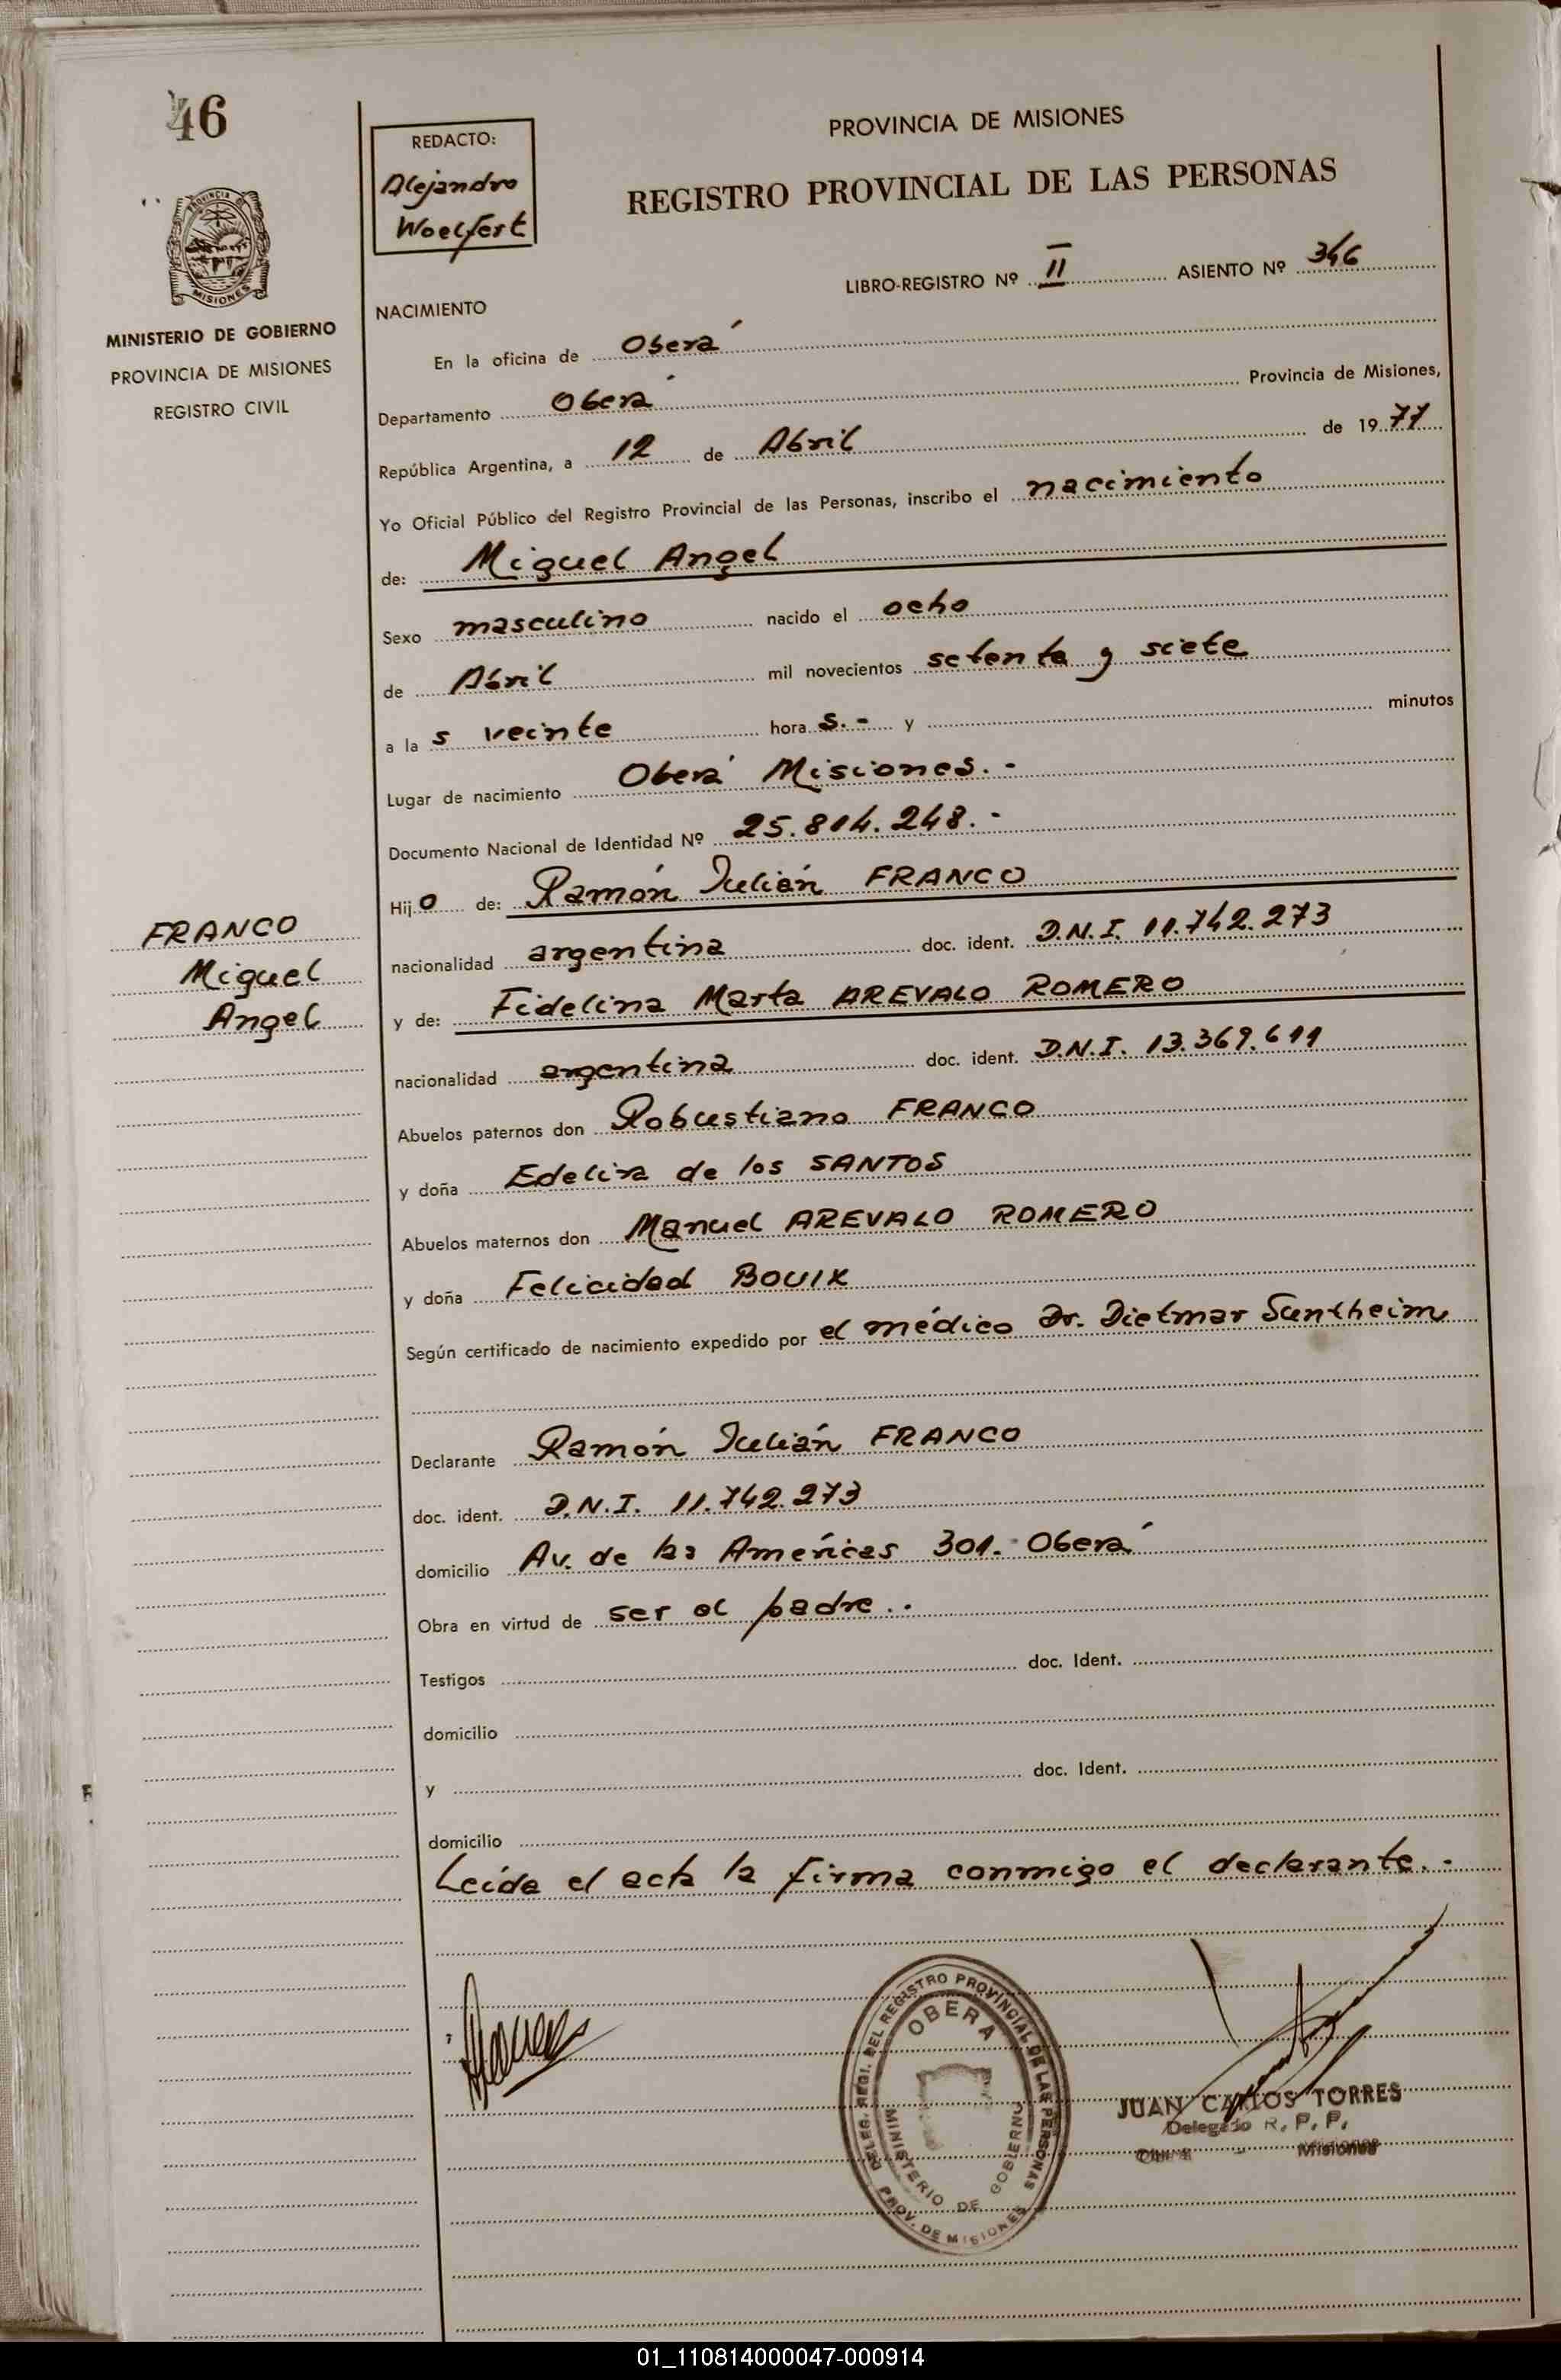 46
REDACTO:
Alejandro
Woelfert
PROVINCIA DE MISIONES
REGISTRO PROVINCIAL DE LAS PERSONAS
PROVINCIA DE
MISIONES
MINISTERIO DE GOBIERNO
PROVINCIA DE MISIONES
REGISTRO CIVIL
LIBRO-REGISTRO Nº II ASIENTO Nº 346
NACIMIENTO
En la oficina de Oberá
Departamento Oberá Provincia de Misiones,
República Argentina, a 12 de Abril de 1977
Yo Oficial Público del Registro Provincial de las Personas, inscribo el nacimiento
de: Miguel Angel
Sexo masculino nacido el ocho
de Abril mil novecientos setenta y siete
a la s veinte hora s.- y minutos
Lugar de nacimiento Oberá Misiones.-
Documento Nacional de Identidad Nº 25.814.248.-
Hijo de: Ramón Julián FRANCO
FRANCO
Miguel
Angel
nacionalidad argentina doc. ident. D.N.I. 11.742.273
y de: Fidelina Marta AREVALO ROMERO
nacionalidad argentina doc. ident. D.N.I. 13.369.611
Abuelos paternos don Robustiano FRANCO
y doña Edelira de los SANTOS
Abuelos maternos don Manuel AREVALO ROMERO
y doña Felicidad BOUIX
Según certificado de nacimiento expedido por el médico Dr. Dietmar Suntheim
Declarante Ramón Julián FRANCO
doc. ident. D.N.I. 11.742.273
domicilio Av. de las Américas 301.- Oberá
Obra en virtud de ser el padre..
Testigos doc. Ident.
domicilio
y doc. Ident.
domicilio
Leída el acta la firma conmigo el declarante.-
DELEG. REGI. DEL REGISTRO PROVINCIAL DE LAS PERSONAS
OBERA
MINISTERIO DE GOBIERNO
PROV. DE MISIONES
JUAN CARLOS TORRES
Delegado R. P. P.
Misiones
01_110814000047-000914